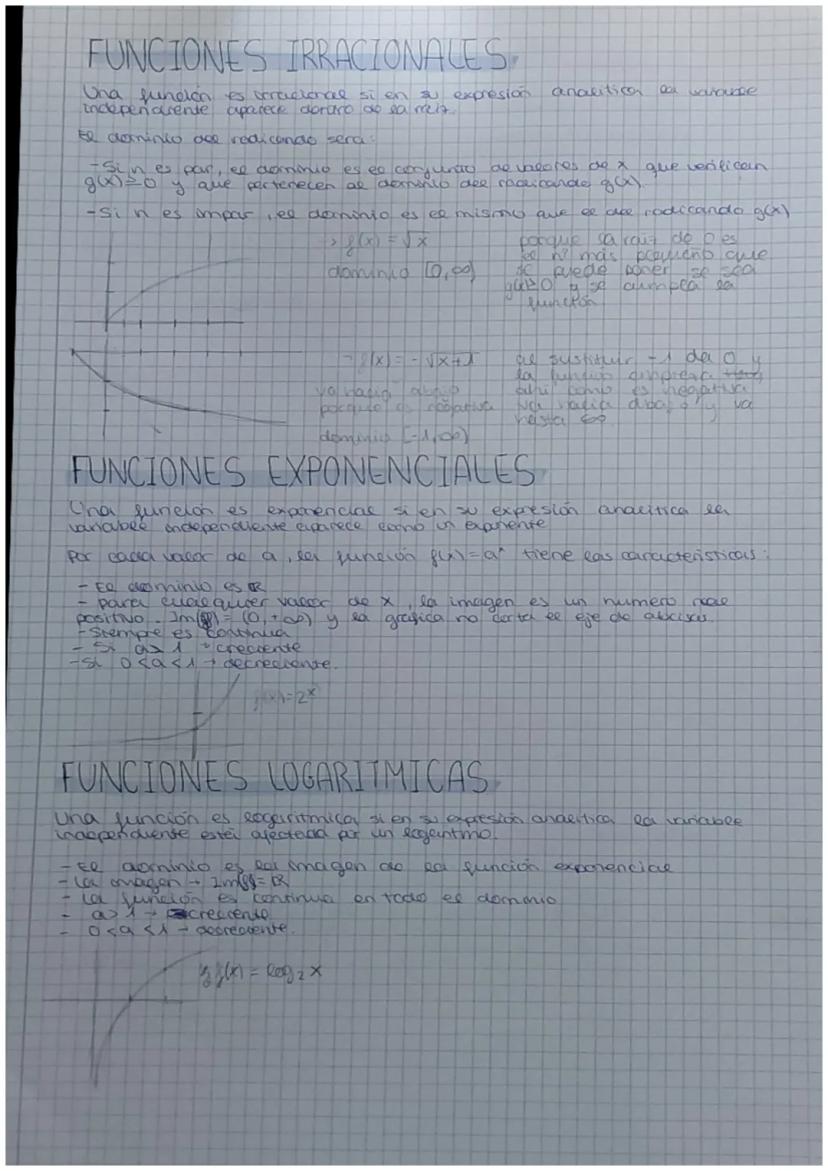 FUNCIONES IRRACIONALES
Una función es irracional si en su expresión analítica la variable
independiente aparece dentro de la raíz.
El dominio del radicando será:
- Si n es par, el dominio es el conjunto de valores de x que verifican
g(x) ≥ 0 y que pertenecen al dominio del radicando g(x)
- Si n es impar, el dominio es el mismo que el del radicando g(x)
→ f(x) = √x
dominio [0,∞)
porque la raíz de 0 es
el nº más pequeño que
se puede poner se sea
y se cumpla la
función
→ f(x) = - √x+1
va hacia abajo
porque es negativa
dominio [-1,∞)
al sustituir -1 da 0 y
la función empieza
ahí como es negativa
va hacia abajo y va
hasta ∞
FUNCIONES EXPONENCIALES
Una función es exponencial si en su expresión analítica la
variable independiente aparece como un exponente
Por cada valor de a, la función f(x) = aˣ tiene las características:
- El dominio es ℝ
- para cualquier valor de x, la imagen es un numero real
positivo. Im(f) = (0, +∞) y la gráfica no corta el eje de abcisas.
- Siempre es continua
- Si a > 1 → creciente
- Si 0 < a < 1 → decreciente.
f(x) = 2ˣ
FUNCIONES LOGARITMICAS
Una función es logarítmica si en su expresión analítica la variable
independiente está afectada por un logaritmo.
- El dominio es la imagen de la función exponencial
- La imagen → Im(f) = ℝ
- La función es continua en todo el dominio
- a > 1 → creciente
- 0 < a < 1 → decreciente.
f(x) = log₂ x